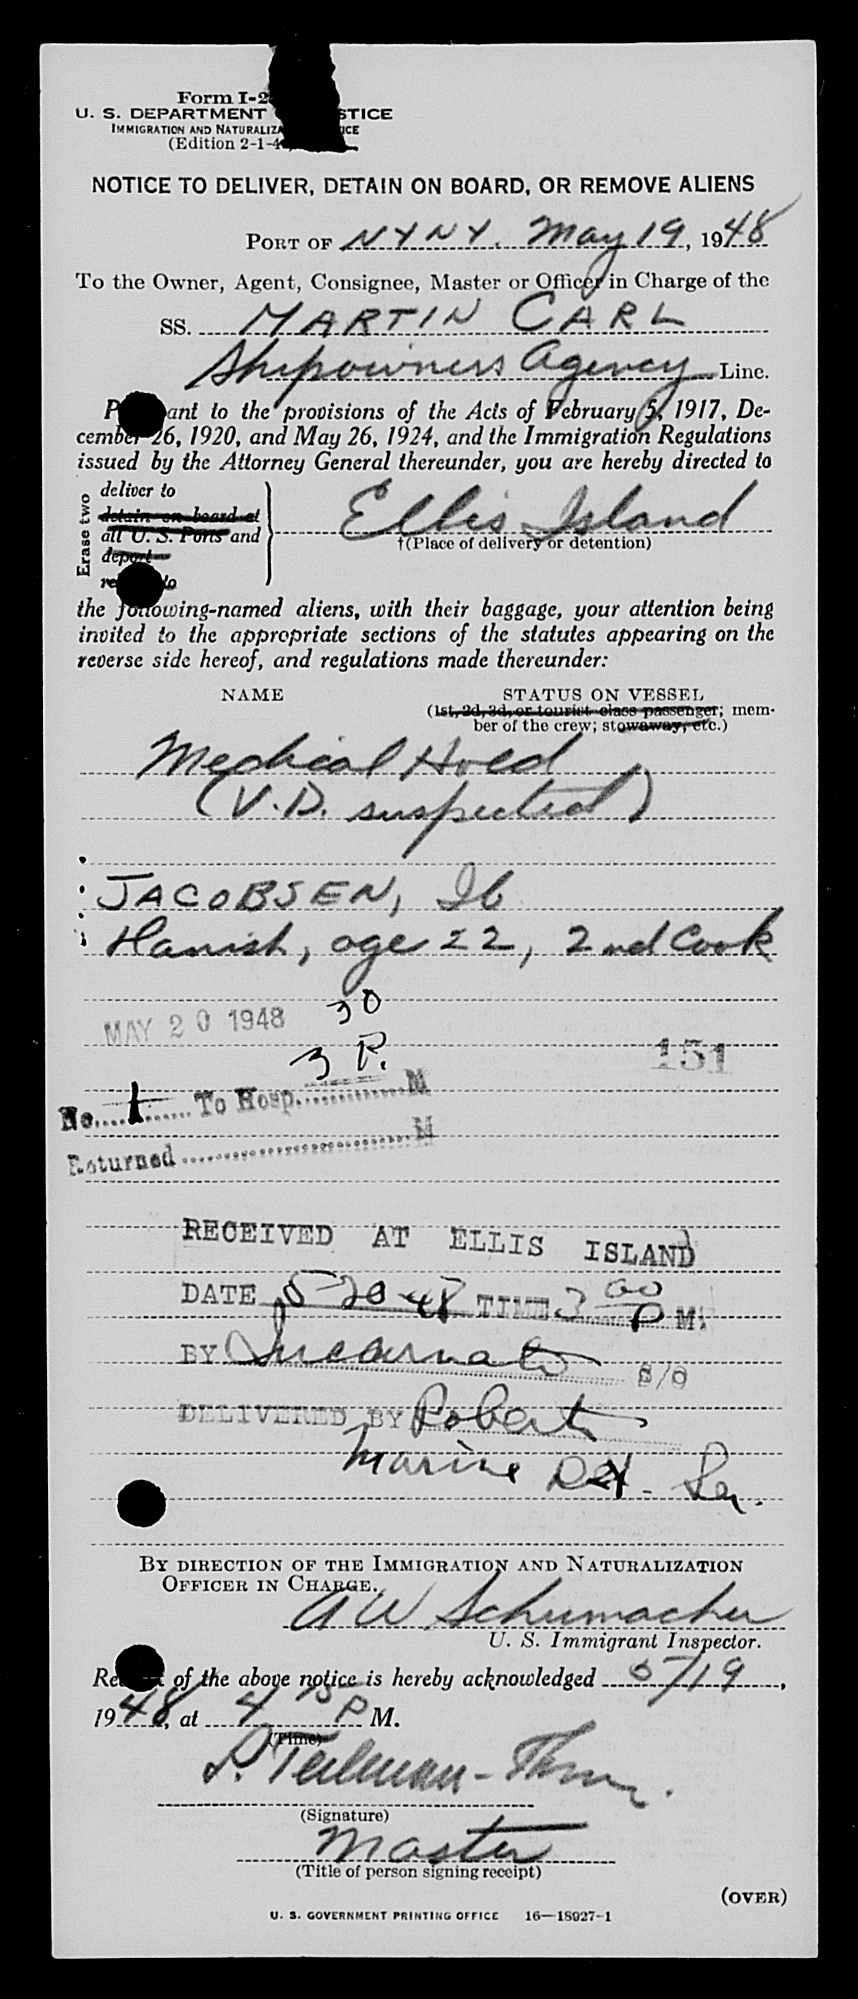 Form I-2
U. S. DEPARTMENT STICE
IMMIGRATION AND NATURALIZA ICE
(Edition 2-1-4
NOTICE TO DELIVER, DETAIN ON BOARD, OR REMOVE ALIENS
PORT OF NYNY. May 19, 1948
To the Owner, Agent, Consignee, Master or Officer in Charge of the
SS. MARTIN CARL
Shipowners Agency Line.
P ant to the provisions of the Acts of February 5, 1917, De-
cember 26, 1920, and May 26, 1924, and the Immigration Regulations
issued by the Attorney General thereunder, you are hereby directed to
Erase two
deliver to
detain on board at
all U. S. Ports and
deport
re to
Ellis Island
†(Place of delivery or detention)
the following-named aliens, with their baggage, your attention being
invited to the appropriate sections of the statutes appearing on the
reverse side hereof, and regulations made thereunder:
NAME STATUS ON VESSEL
(1st, 2d, 3d, or tourist class passenger; mem-
ber of the crew; stowaway, etc.)
Medical Hold
(V.D. suspected)
JACOBSEN, Ib
Danish, age 22, 2nd Cook
MAY 20 1948 30
3 P. 151
No. 1 To Hosp. M
Returned M
RECEIVED AT ELLIS ISLAND
DATE 5-20-48 TIME 3 00 P M.
BY Incarnato S/O
DELIVERED BY Roberts
Marine Det.
BY DIRECTION OF THE IMMIGRATION AND NATURALIZATION
OFFICER IN CHARGE.
A W Schumacher
U. S. Immigrant Inspector.
Re of the above notice is hereby acknowledged 5/19,
1948, at 4 15 P M.
(Time)
(Signature)
Master
(Title of person signing receipt)
(OVER)
U. S. GOVERNMENT PRINTING OFFICE 16—18927-1